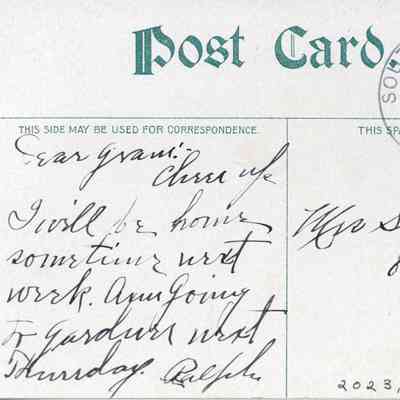 Post Card.
SOU
THIS SIDE MAY BE USED FOR CORRESPONDENCE.
THIS SPA
Dear Gram:-
Cheer up
I will be home
sometime next
week. Am Going
To Gardner next
Thursday. Ralph
Mrs S
2023,